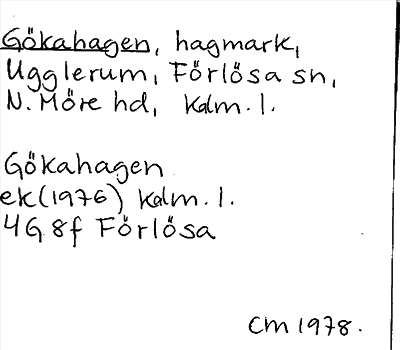 Gökahagen, hagmark,
Ugglerum, Förlösa sn,
N. Möre hd, Kalm. l.
Gökahagen
ek (1976) Kalm. l.
4G 8f Förlösa
CM 1978.